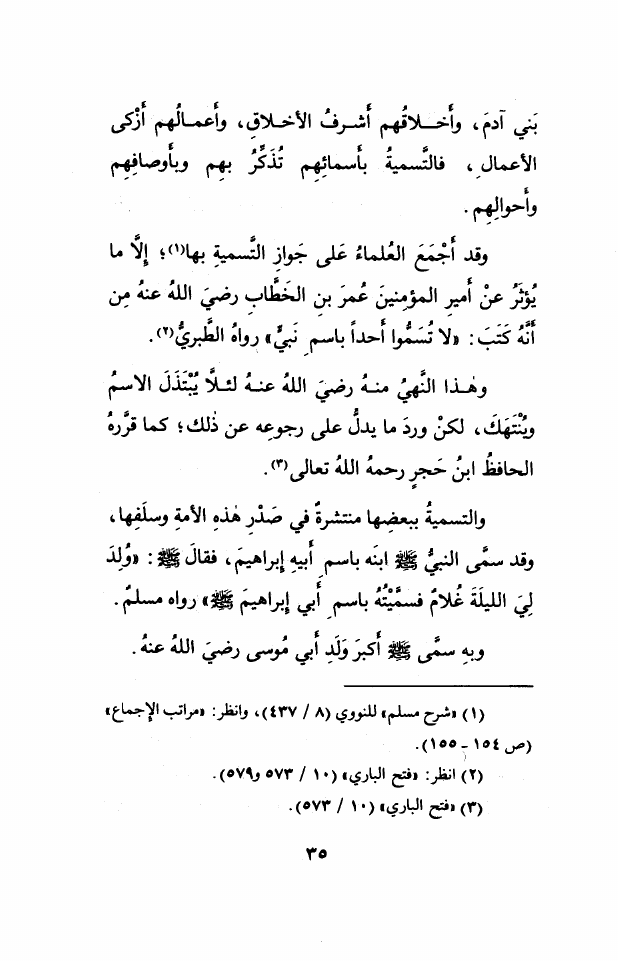 بَني آدمَ، وأَخـلاقُهم أَشـرفُ الأخـلاقِ، وأَعمـالُهم أَزْكى
الأعمالِ، فالتَّسميةُ بأَسمائِهِم تُذَكِّرُ بِهِم وبأَوصافِهِم
وأَحوالِهِم.
وقد أَجْمَعَ العُلماءُ عَلى جَوازِ التَّسميةِ بها(١)؛ إِلَّا ما
يُؤثَرُ عنْ أَميرِ المؤمِنينَ عُمرَ بنِ الخَطَّابِ رضيَ اللهُ عنهُ مِن
أَنَّهُ كَتَبَ: «لا تُسَمُّوا أَحداً باسمِ نَبيٍّ» رواهُ الطَّبريُّ(٢).
وهٰـذا النَّهيُ منـهُ رضيَ اللهُ عنـهُ لئـلاَّ يُبْتَذَلَ الاسمُ
ويُنْتَهَكَ، لكنْ وردَ ما يدلُّ على رجوعِه عن ذٰلك؛ كما قرَّرهُ
الحافظُ ابنُ حَجرٍ رحمهُ اللهُ تعالى(٣).
والتسميةُ ببعضِها منتشرةٌ في صَدْرِ هٰذهِ الأمةِ وسلَفِها،
وقد سمَّى النبيُّ ﷺ ابنَه باسمِ أَبيهِ إِبراهيمَ، فقالَ ﷺ: «وُلِدَ
لِيَ الليلَةَ غُلامٌ فسمَّيْتُهُ باسمِ أَبي إِبراهيمَ ﷺ» رواه مسلمٌ.
وبهِ سمَّى ﷺ أَكبرَ وَلَدِ أَبي مُوسى رضيَ اللهُ عنهُ.
(١) «شرح مسلم» للنووي (٨ / ٤٣٧)، وانظر: «مراتب الإِجماع»
(ص ١٥٤ - ١٥٥).
(٢) انظر: «فتح الباري» (١٠ / ٥٧٣ و٥٧٩).
(٣) «فتح الباري» (١٠ / ٥٧٣).
٣٥